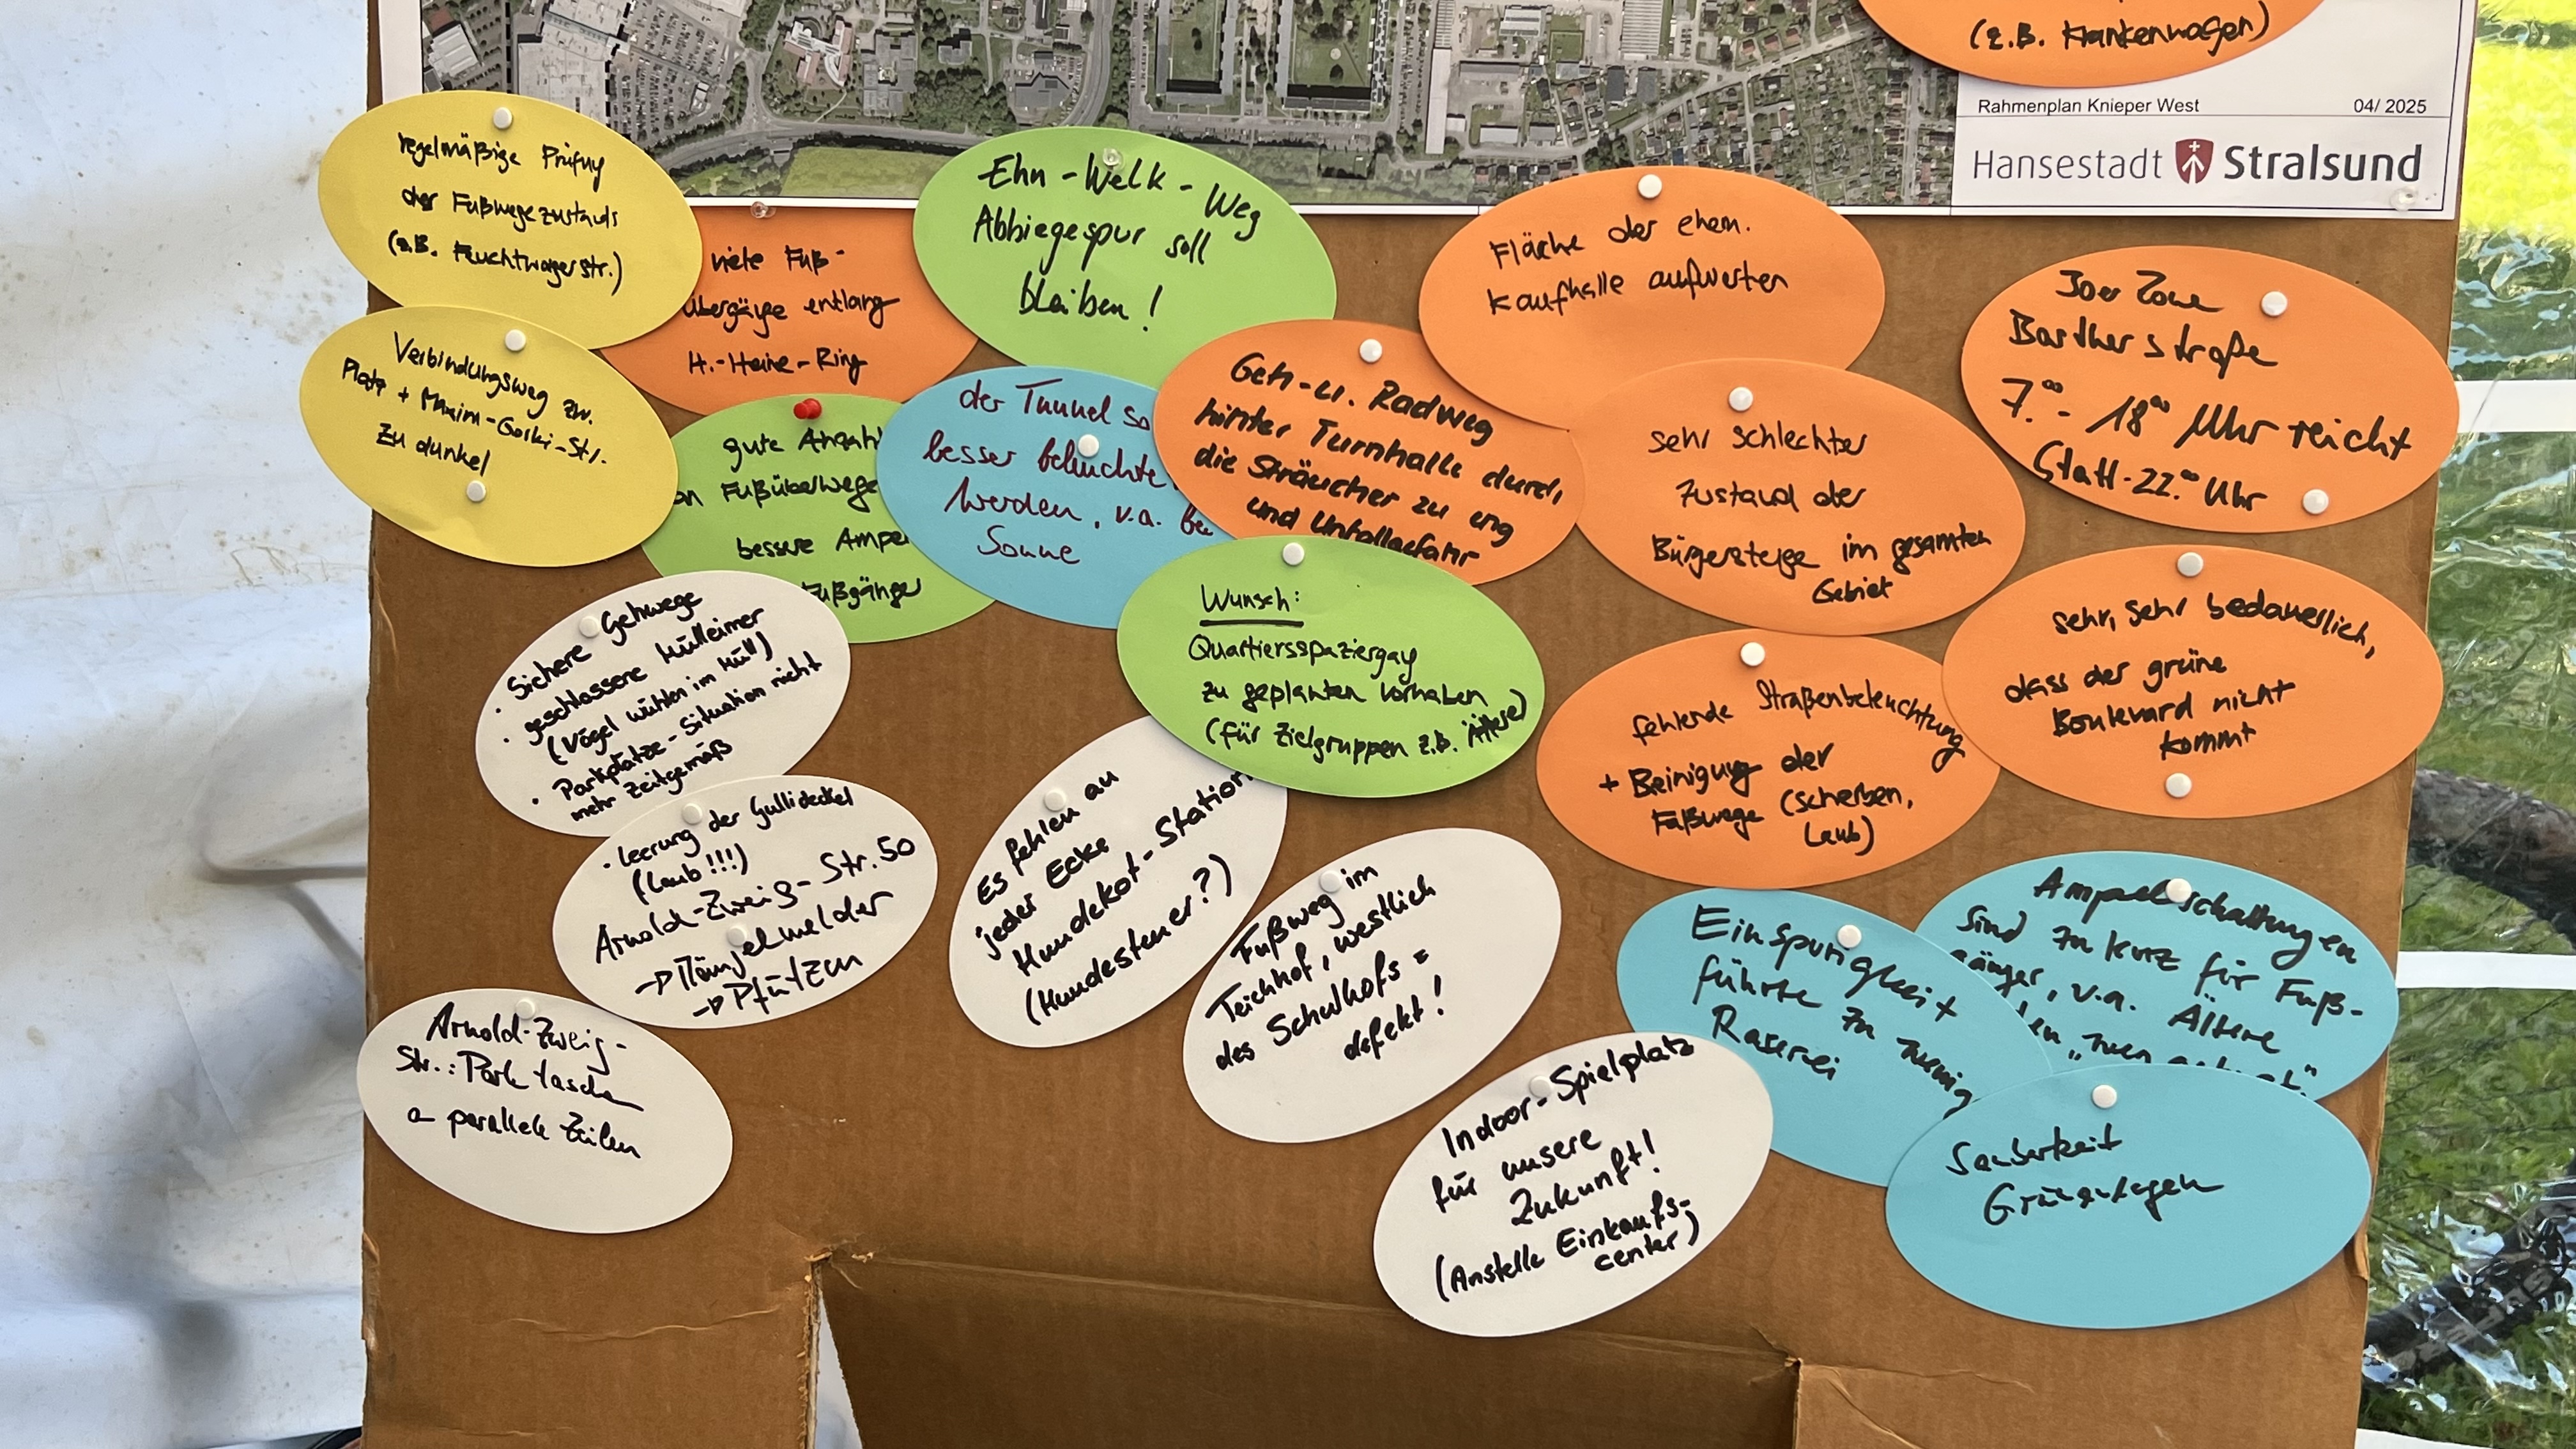 (z.B. Krankenwagen)
Rahmenplan Knieper West 04/ 2025
Hansestadt Stralsund
regelmäßige Prüfung
des Fußwegezustands
(z.B. Feuchtwangerstr.)
viele Fuß-
übergänge entlang
H.-Heine-Ring
Ehn-Welk-Weg
Abbiegespur soll
bleiben!
Fläche der ehem.
Kaufhalle aufwerten
30er Zone
Barther straße
7.00 - 18.00 Uhr reicht
Statt - 22.00 Uhr
Verbindungsweg zw.
Platz + Maxim-Gorki-Str.
zu dunkel
gute Anzahl
an Fußüberwege
bessere Ampel
Fußgänger
der Tunnel so
besser beleuchte
werden, v.a. be
Sonne
Geh- u. Radweg
hinter Turnhalle durch
die Sträucher zu eng
und Unfallgefahr
sehr schlechter
Zustand der
Bürgersteige im gesamten
Gebiet
sehr, sehr bedauerlich,
dass der grüne
Boulevard nicht
kommt
Wunsch:
Quartiersspaziergang
zu geplanten Vorhaben
(für Zielgruppen z.B. Ältere)
• Sichere Gehwege
• geschlossene Mülleimer
(Vögel wühlen im Müll)
• Parkplätze-Situation nicht
mehr Zeitgemäß
fehlende Straßenbeleuchtung
+ Reinigung der
Fußwege (Scherben,
Laub)
• Leerung der Gullideckel
(Laub!!!)
Arnold-Zweig-Str. 50
→ Mängelmelder
→ Pfützen
Es fehlen an
jeder Ecke
Hundekot-Station
(Hundesteuer?)
Fußweg im
Teichhof, westlich
des Schulhofs =
defekt!
Einspurigkeit
führte zu wenig
Raserei
Ampelschaltungen
sind zu kurz für Fuß-
gänger, v.a. Ältere
Arnold-Zweig-
Str.: Parktasche
parallele Zeilen
Indoor-Spielplatz
für unsere
Zukunft!
(Anstelle Einkaufs-
center)
Sauberkeit
Grünanlagen